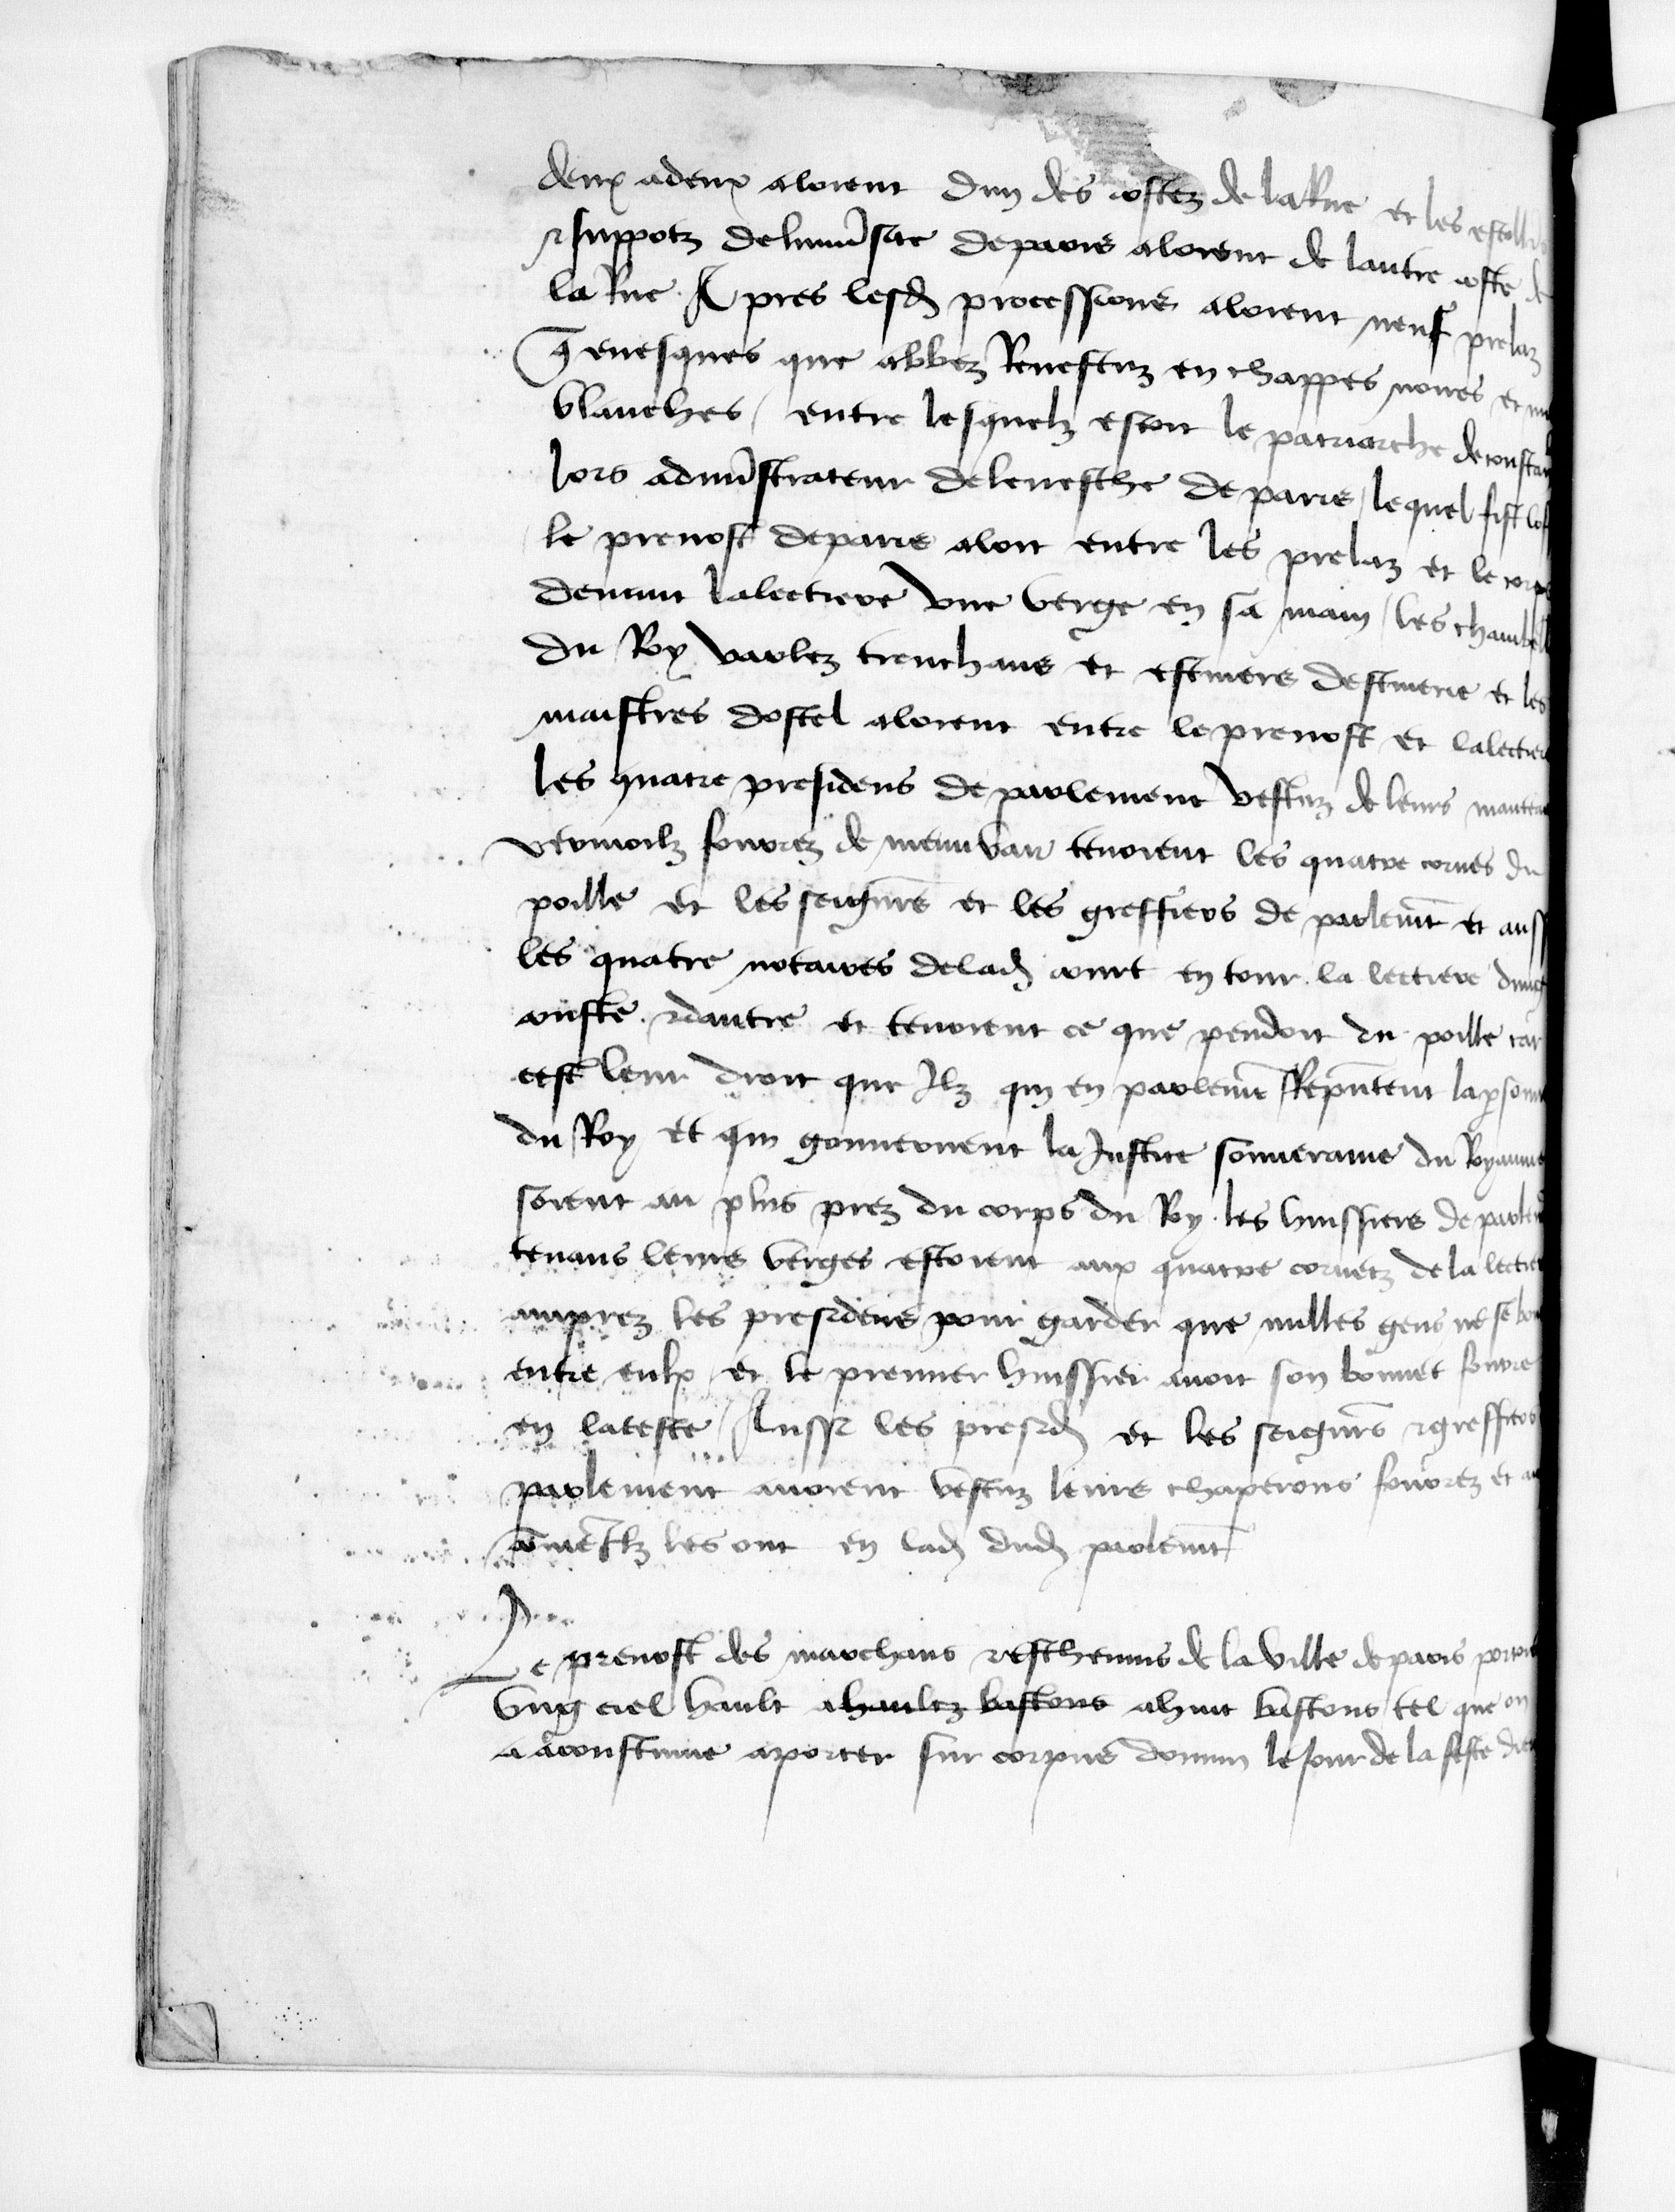 deux adeux aloient dun des costez de laRue et les escolli
et suppotz deluni͂site deparis aloient de lautre coste de
laRue Apres lesd͂ processions aloient neuf prelaz
q͂ euesques que abbez Reuestuz en chappes noires et
blanches / entre lesquelz estoit le patriarche deconstan
lors admi͂strateur deleuesche deparis / lequel fist lof
le preuost deparis aloit entre les prelaz et le corps
deuant lalectiere vne verge en sa main / les chambell
du Roy varlez trenchans et escuiers descuierie et les
maistres dostel aloient entre lepreuost et lalectiere
les quatre presidens de parlement vestuz de leurs manteau
vermeilz fourrez de menuvair tenoient les quatre cornes du
poille et les seign͂rs et les greffiers de parlem͂t et auss
les quatre notaires delad͂ court en tour la lectiere dung
couste et dautre et tenoient ce que pendoit du poille car
cest leur droit que Ilz qui en parlem͂t Rep͂ntent lap͂sonn
du Roy et qui gouuernent laJustice souueraine du Royaume
soient au plus prez du corps du Roy. les huissiers de parlem
tenans leurs verges estoient aux quatre cornetz de la lectier
auprez les presidens pour garder que nulles gens ne se bou
entre eulx et le premier huissier auoit son bonnet fourre
en lateste / Aussi les presid͂ et les seign͂rs et greffiers
parlement auoient vestuz leurs chaperons fourrez et
co͂me Ilz les ont en lad͂ dud͂ parlem͂t
Le preuost des marchans et escheuins de laville deparis portoi
vng ciel hault ahaultz bastons ahuit bastons tel que on
a acoustume aporter sur corpus domini le Jour de la feste dieu